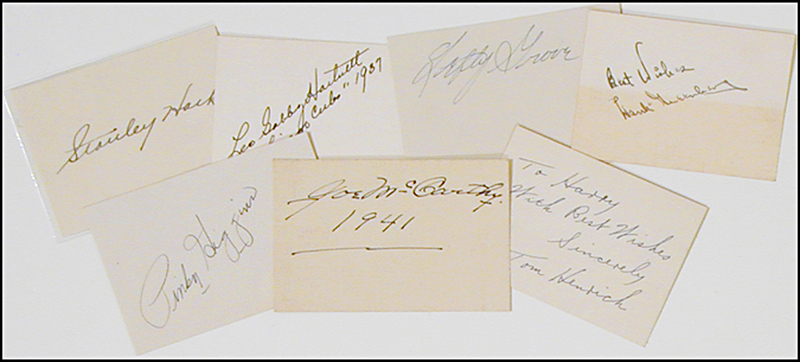 Stanley Hack
Leo Gabby Hartnett
Cubs" 1937
Lefty Grove
Best Wishes
Hank Greenberg
Pinky Higgins
Joe McCarthy
1941
To Harry
With Best Wishes
Sincerely
Tom Henrich